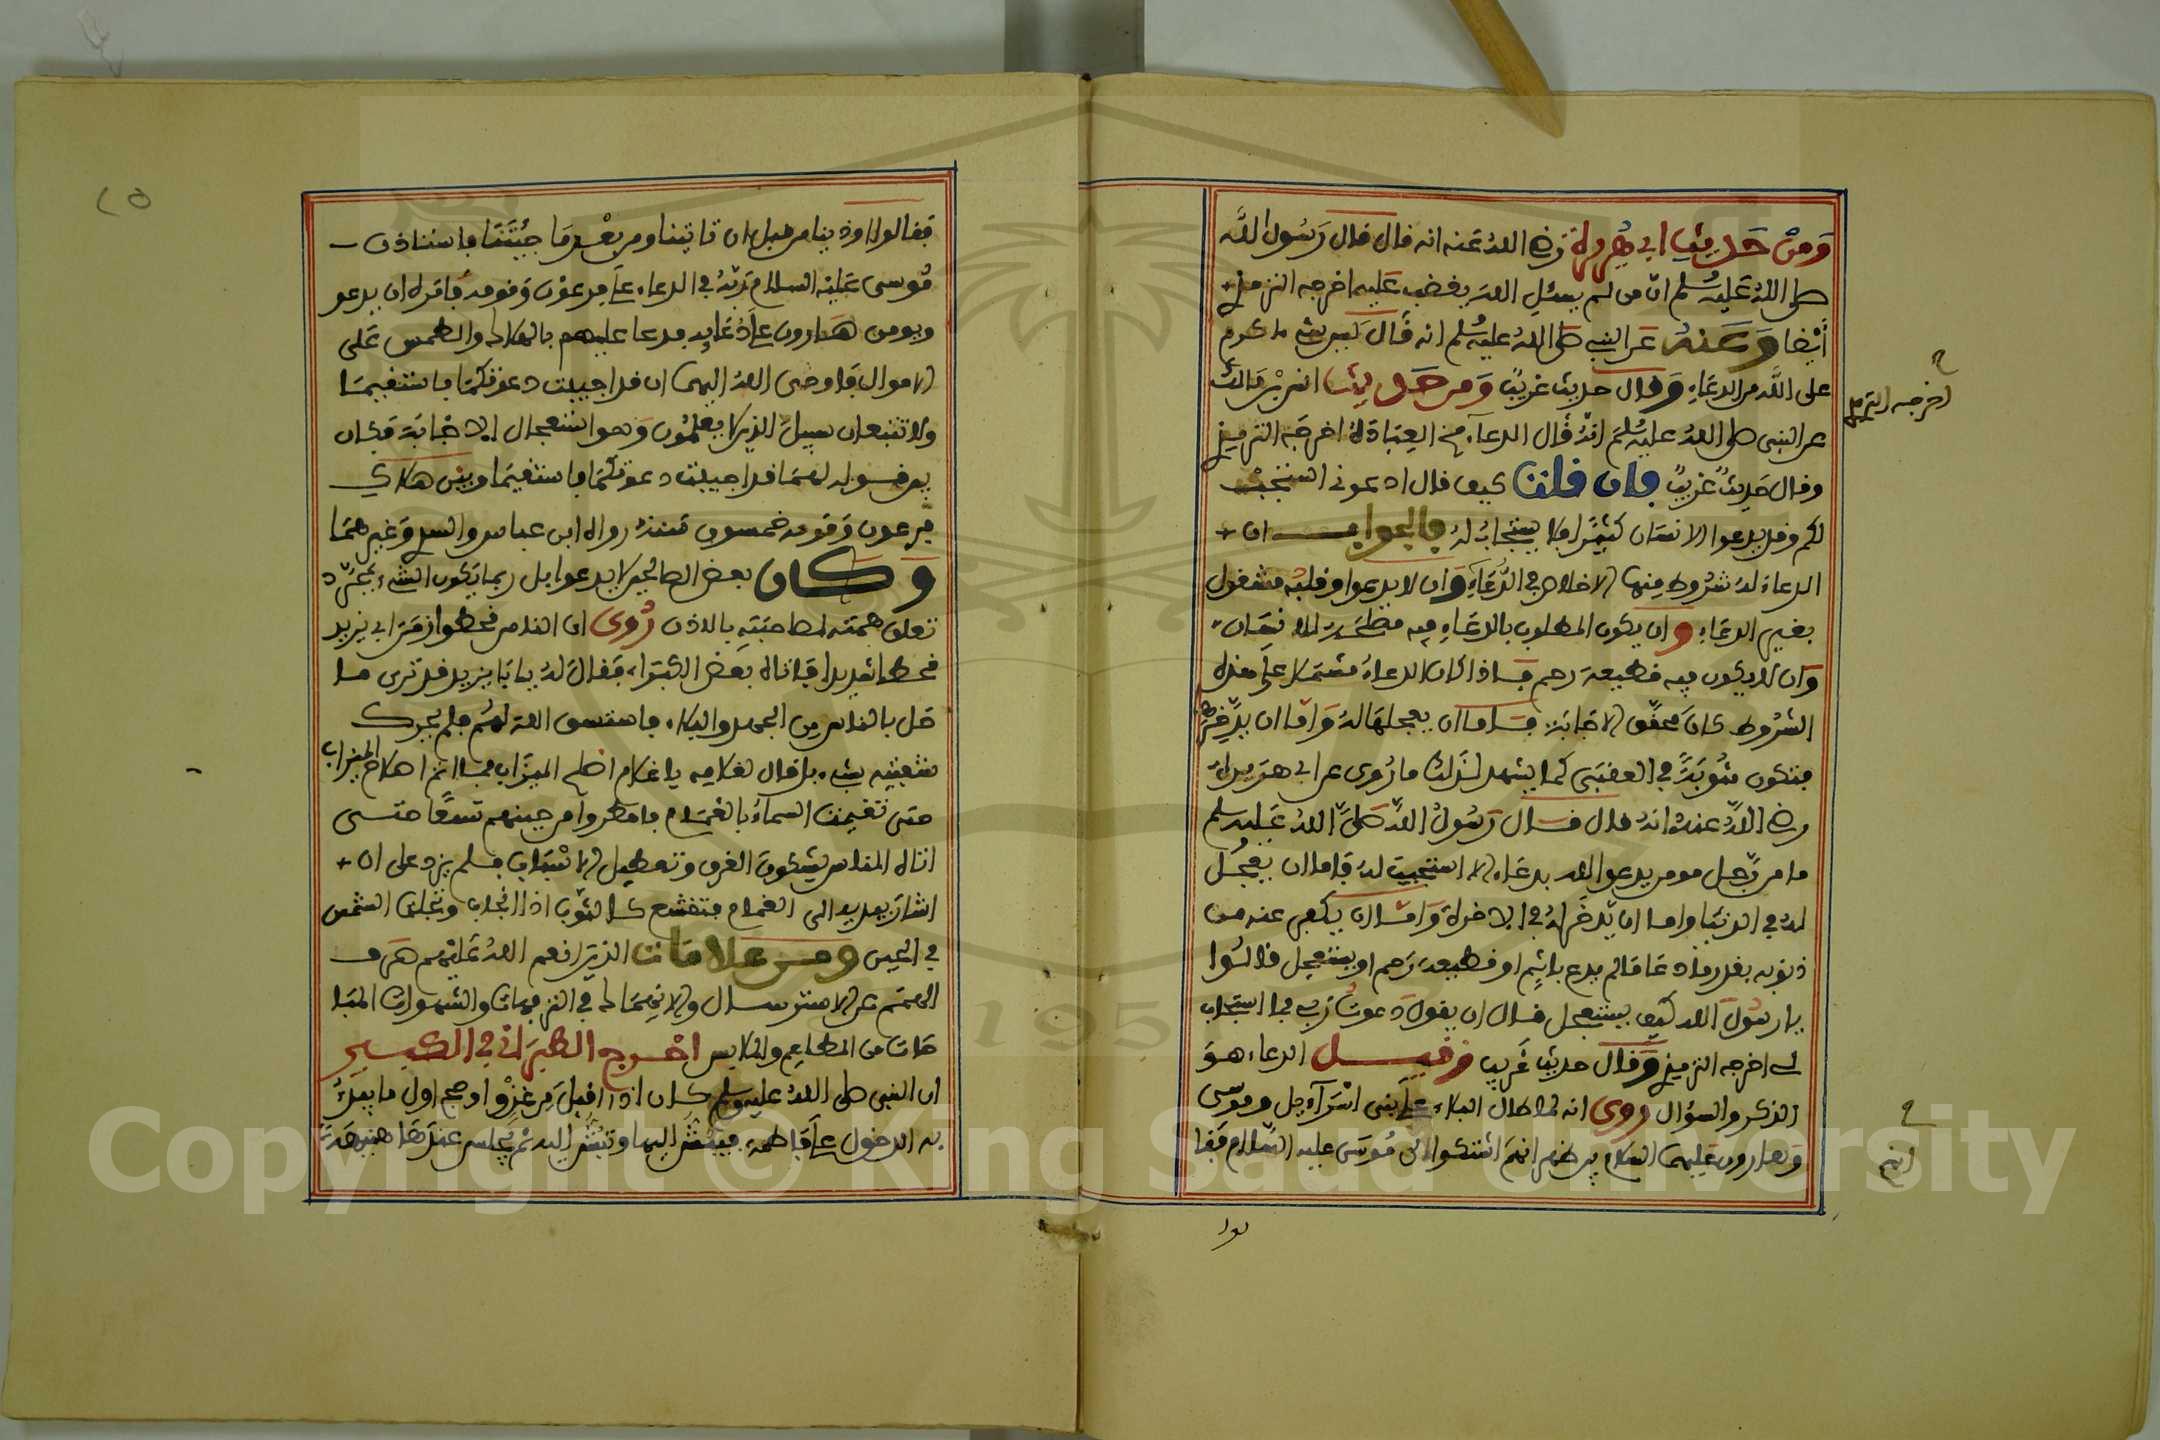 ومن حديث ابي هريرة رضي الله عنه انه قال قال رسول الله
صلى الله عليه وسلم ان من لم يسئل الله يغضب عليه اخرجه الترمذي
أيضا وعنه عن النبي صلى الله عليه وسلم انه قال ليس شيء اكرم
على الله من الدعاء وقال حديث غريب ومن حديث انس بن مالك
اخرجه الترمذي
عن النبي صلى الله عليه وسلم انه قال الدعاء مخ العبادة اخرجه الترمذي
وقال حديث غريب فان قلت كيف قال ادعوني استجب
لكم وقد يدعوا الانسان كثيرا فلا يستجاب له فالجواب ان
الدعاء له شروط منها الاخلاص في الدعاء وان لا يدعوا وقلبه مشغول
بغير الدعاء وان يكون المطلوب بالدعاء فيه مصلحة للانسان
وان لا يكون فيه قطيعة رحم فاذا كان الدعاء مشتملا على هذه
الشروط كان محقق الاجابة فاما ان يعجلها له واما ان يدخرها
فتكون مثوبة في العقبى كما يشهد لذلك ما روى عن ابي هريرة
رضي الله عنه انه قال قال رسول الله صلى الله عليه وسلم
ما من رجل مومن يدعو الله بدعاء الا استجيب له فاما ان يعجل
له في الدنيا واما ان يدخر له في الاخرة واما ان يكفر عنه من
ذنوبه بقدر ما دعا ما لم يدع باثم او قطيعة رحم او يستعجل قالوا
يا رسول الله كيف يستعجل قال ان يقول دعوت ربي فما استجاب
لي اخرجه الترمذي وقال حديث غريب وقيل الدعاء هو
الذكر والسؤال روى انه لما طال البلاء على بني اسرآءيل وموسى
وهارون عليهما السلام بين اظهرهم انهم اشتكوا الى موسى عليه السلام فقا
لوا
فقالوا اوذينا من قبل ان تاتينا ومن بعد ما جئتنا فاستاذن
موسى عليه السلام ربه في الدعاء على فرعون وقومه فامره ان يدعو
ويومن هارون على دعايه فدعا عليهم بالهلاك والطمس على
الاموال فاوحى الله اليهما ان قد اجيبت دعوتكما فاستقيما
ولا تتبعان سبيل الذين لا يعلمون وهو استعجال الاجابة فكان
بين قوله لهما قد اجيبت دعوتكما فاستقيما وبين هلاك
فرعون وقومه خمسون سنة رواه ابن عباس والسدي وغيرهما
وكان بعض الصالحين لا يدعوا بل ربما يكون الشيء بمجرد
تعلق همته لصاحبته بالاذن روى ان الناس قحطوا زمن ابي يزيد
قحطا شديدا فاتاه بعض الكبراء فقال له يابا يزيد قد ترى ما
حل بالناس من الجهد والبلاء فاستسق الله لهم فلم يحرك
شفتيه بشيء بل قال لغلامه يا غلام اصلح الميزاب فما اتم اصلاح الميزاب
حتى تغيمت السماء بالغمام فامطروا من حينهم تسعا حتى
اتاه الناس يشكون الغرق وتعطيل الاسباب فلم يزد على ان
اشار بيده الى الغمام فتقشع كالثوب اذا انجاب وتجلت الشمس
في الحين ومن علامات الذين انعم الله عليهم صرف
الهمم عن الاسترسال والانهماك في الترفهات والشهوات المبا
حات من المطاعم والملابس اخرج الطبراني في الكبير
ان النبي صلى الله عليه وسلم كان اذا اقبل من غزو او حج اول ما يبدأ
به الدخول على فاطمة فيبش اليها وتبش اليه ثم يجلس عندها